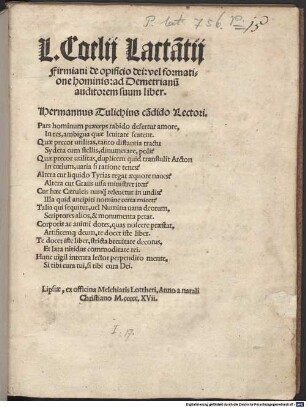 P. lat. 756.
L. Coelij Lactãtij
Firmiani de opificio dei: vel formati-
one hominis: ad Demetrianũ
auditorem suum liber.
Hermannus Tulichius cãdido Lectori.
Pars hominum præceps rabido defertur amore,
In res, ambigua quæ levitate scatent.
Quæ precor utilitas, tanto distantia tractu
Sydera cum stellis, dinumerare, polis?
Quæ precor utilitas, duplicem quid transfudit Arcton
In cœlum, varia si ratione
Altera cur liquido Tyrias regat æquore naues?
Altera cur Graiis uisa ministret iter?
Cur hæc Cæruleis nunq̃ releuetur in undis?
Illa quid ancipiti nomine certa micet?
Talia qui sequitur, uel Numina uana deorum,
Scriptores alios, & monumenta petat.
Corporis ac animi dotes, quas noscere præstat,
Artificemq; deum, te docet iste liber.
Te docet iste liber, stricta breuitate decorus,
Et lata nitidus commoditate rei.
Hunc uigili intenta lector perpendito mente,
Si tibi cura tui, si tibi cura Dei.
Lipsiæ, ex officina Melchiaris Lottheri, Anno a natali
Christiano M.ccccc.XVii.